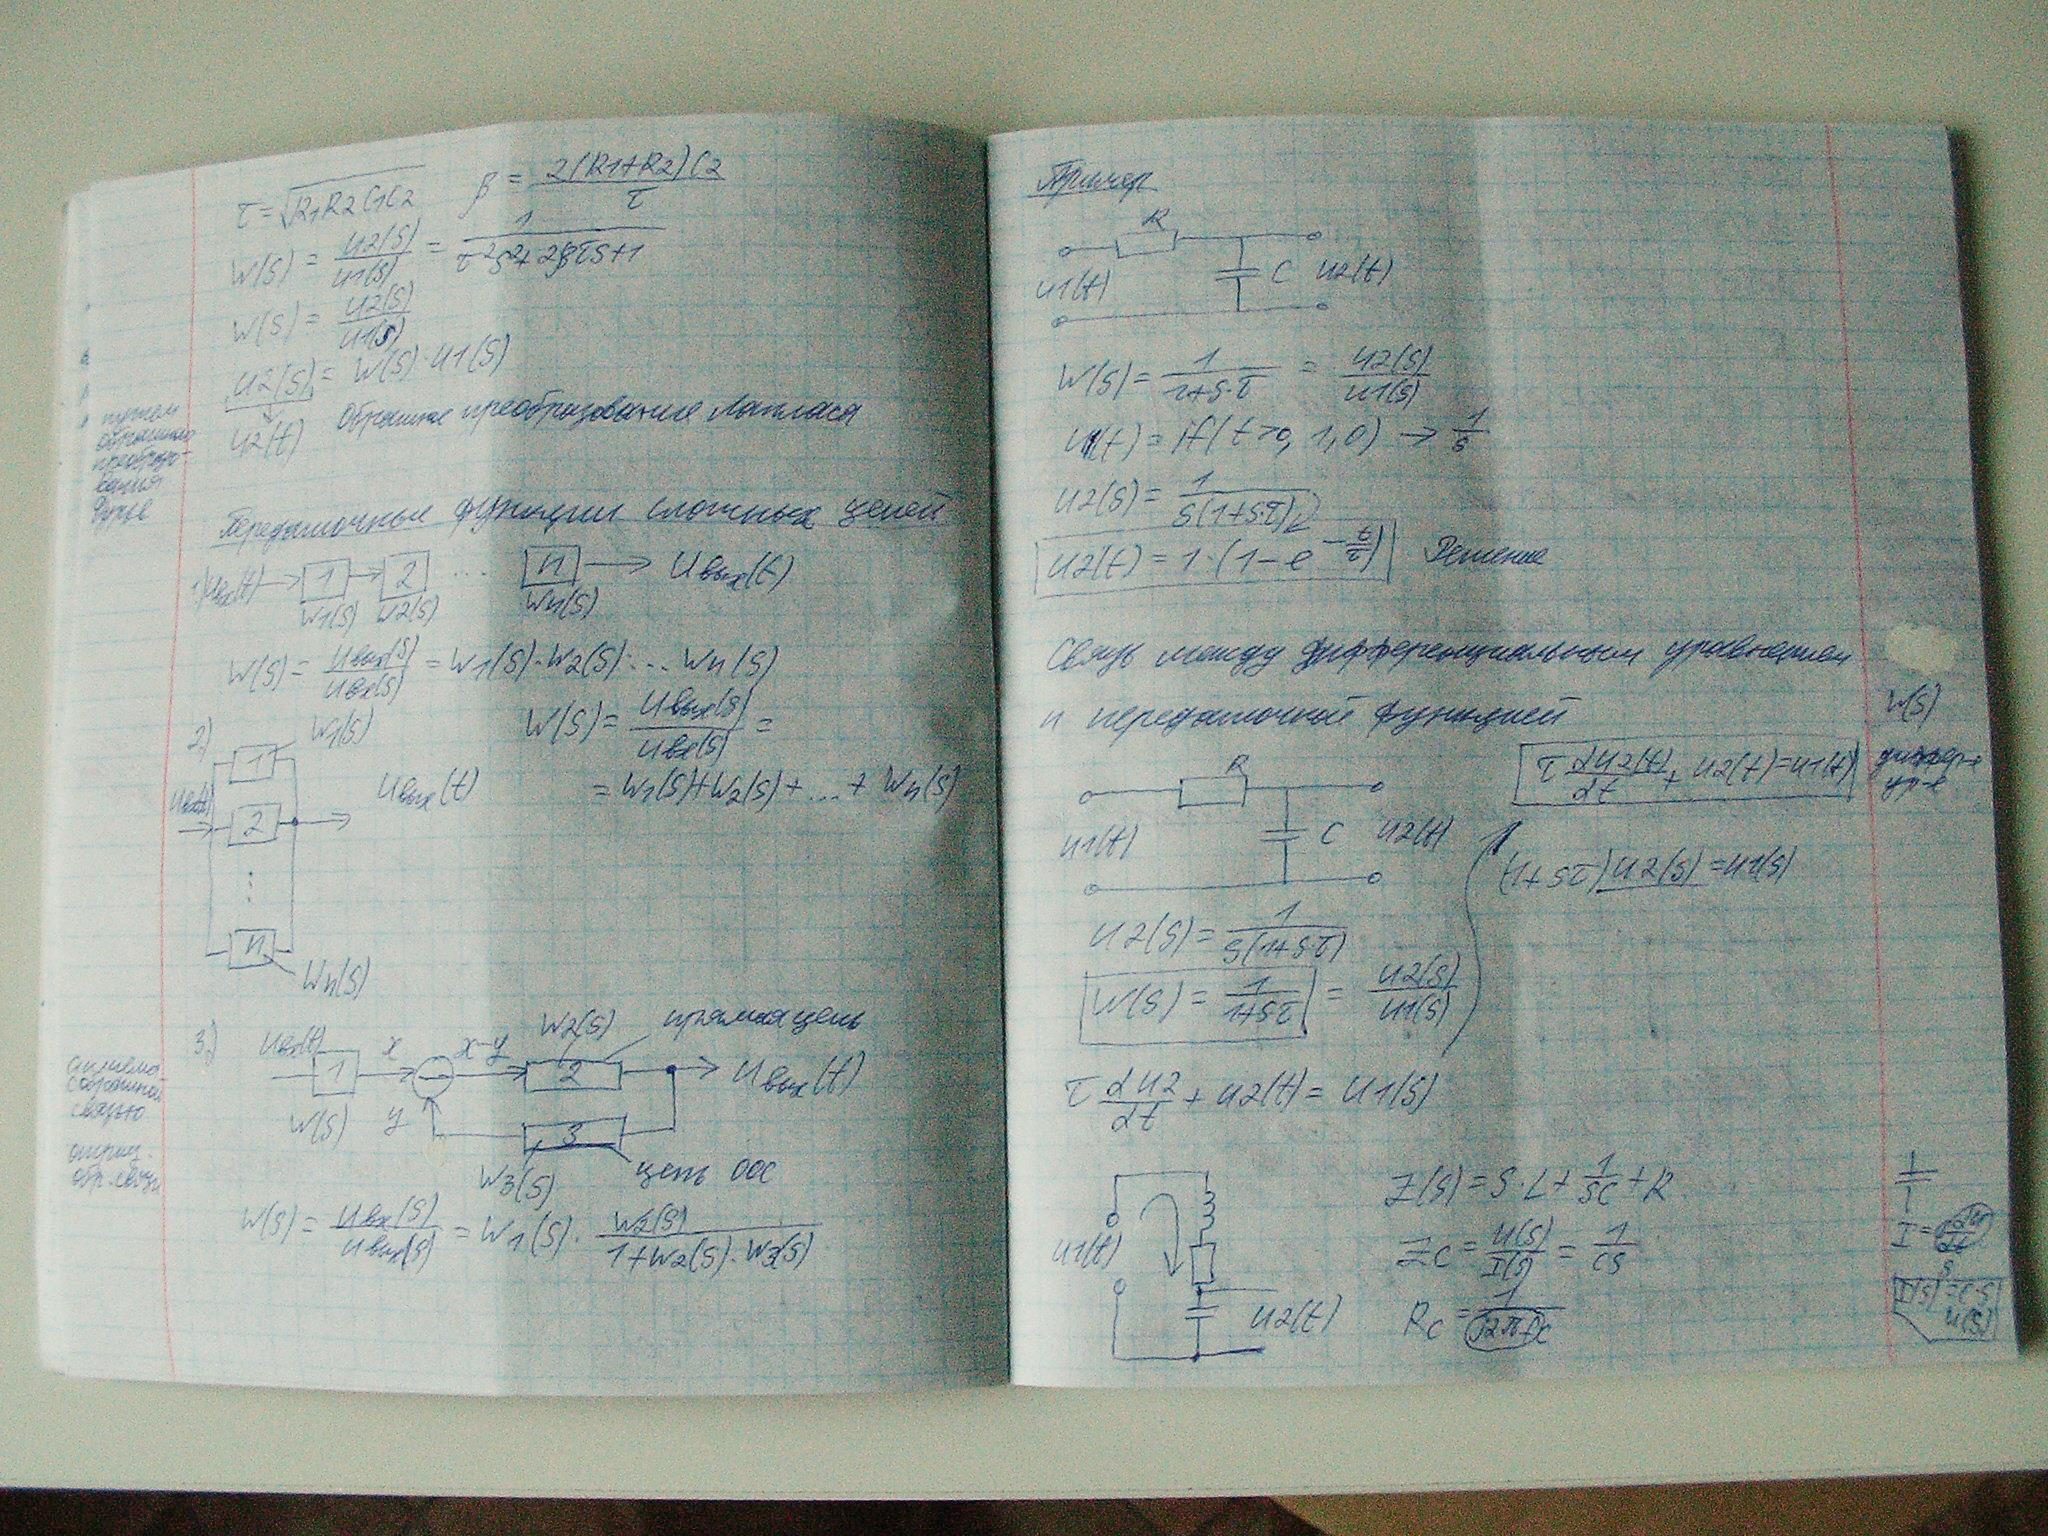 τ = √R1R2C1C2   β = 2(R1+R2)C2 / τ
W(s) = u2(s)/u1(s) = 1/(τ²s²+2βτs+1)
W(s) = u2(s)/u1(s)
u2(s) = W(s)·u1(s)
u2(t) Обратное преобразование Лапласа
путем
обратного
преобразо-
вания
Фурье
Передаточные функции сложных цепей
1) Uвх(t) → 1 → 2 .... n → Uвых(t)
W1(s) W2(s) Wn(s)
W(s) = Uвых(s)/Uвх(s) = W1(s)·W2(s)·...Wn(s)
2) 1 W1(s)
W(s) = Uвых(s)/Uвх(s) =
= W1(s)+W2(s)+...+Wn(s)
Uвх(t) 2 Uвых(t)
n
Wn(s)
3) Uвх(t) 1 x − x-y W2(s) 2 прямая цепь Uвых(t)
W(s) y 3
W3(s) цепь ООС
с обратной
связью
отриц.
обр. связи
W(s) = Uвх(s)/Uвых(s) = W1(s)· W2(s)/(1+W2(s)·W3(s))
Пример
R
u1(t) C u2(t)
W(s) = 1/(1+s·τ) = u2(s)/u1(s)
u1(t) = if(t>0,1,0) → 1/s
u2(s) = 1/(s(1+s·τ))
u2(t) = 1·(1−e^(−t/τ)) Решение
Связь между дифференциальным уравнением
и передаточной функцией
W(s)
R
τ du2(t)/dt + u2(t) = u1(t)
дифер-е
ур-е
u1(t) C u2(t)
(1+sτ)u2(s) = u1(s)
u2(s) = 1/(s(1+s·τ))
W(s) = 1/(1+sτ) = u2(s)/u1(s)
τ du2/dt + u2(t) = u1(s)
u1(t)
u2(t)
Z(s) = s·L + 1/sC + R
Zc = u(s)/I(s) = 1/cs
Rc = 1/(j2πfc)
I = c du/dt
s
I(s) = c·s
u(s)